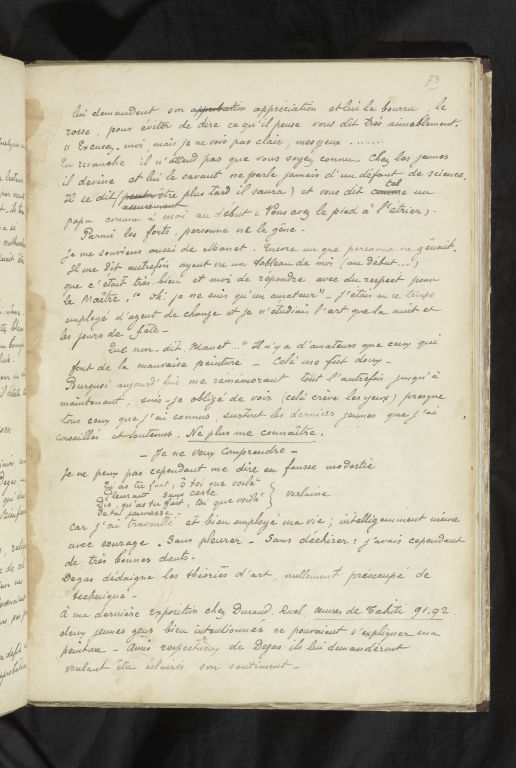 73
lui demandent son approbation appréciation et lui le bourru, le
rosse, pour éviter de dire ce qu'il pense vous dit très aimablement.
"Excusez-moi, mais je ne vois pas clair, mes yeux ......
En revanche il n'attend pas que vous soyez connu. Chez les jeunes
il devine et lui le savant ne parle jamais d'un défaut de science.
Il se dit (peut être plus tard il saura) et vous dit comme tel un
assurement
papa comme à moi au début (Vous avez le pied à l'étrier).
Parmi les forts, personne ne le gêne.
Je me souviens aussi de Manet. Encore un que personne ne gênait.
Il me dit autrefois ayant vu un tableau de moi (au début...)
que c'était très bien et moi de répondre avec du respect pour
le Maître. "Oh! je ne suis qu'un amateur - j'étais en ce temps
employé d'agent de change et je n'étudiais l'art que la nuit et
les jours de fête -
Que non - dit Manet... "Il n'y a d'amateurs que ceux qui
font de la mauvaise peinture - Celà me fut doux -
Pourquoi aujourd'hui me remémorant tout l'autrefois, jusqu'à
maintenant, suis-je obligé de voir (celà crève les yeux) presque
tous ceux que j'ai connus, surtout les derniers jeunes que j'ai
conseillés et soutenus. Ne plus me connaître.
- Je ne veux Comprendre -
Je ne peux pas cependant me dire en fausse modestie
Qu'as tu fait, ô toi que voilà
Pleurant sans cesse
Dis, qu'as tu fait, toi que voilà
De ta jeunesse } verlaine
car j'ai travaillé et bien employé ma vie; intelligemment même
avec courage. Sans pleurer - Sans déchirer: j'avais cependant
de très bonnes dents.
Degas dédaigne les théories d'art, nullement préoccupé de
technique -
à ma dernière exposition chez Durand-Ruel, œuvres de Tahiti 91.92
deux jeunes gens bien intentionnés ne pouvaient s'expliquer ma
peinture - Amis respectueux de Degas ils lui demandèrent
voulant être éclairés son sentiment -